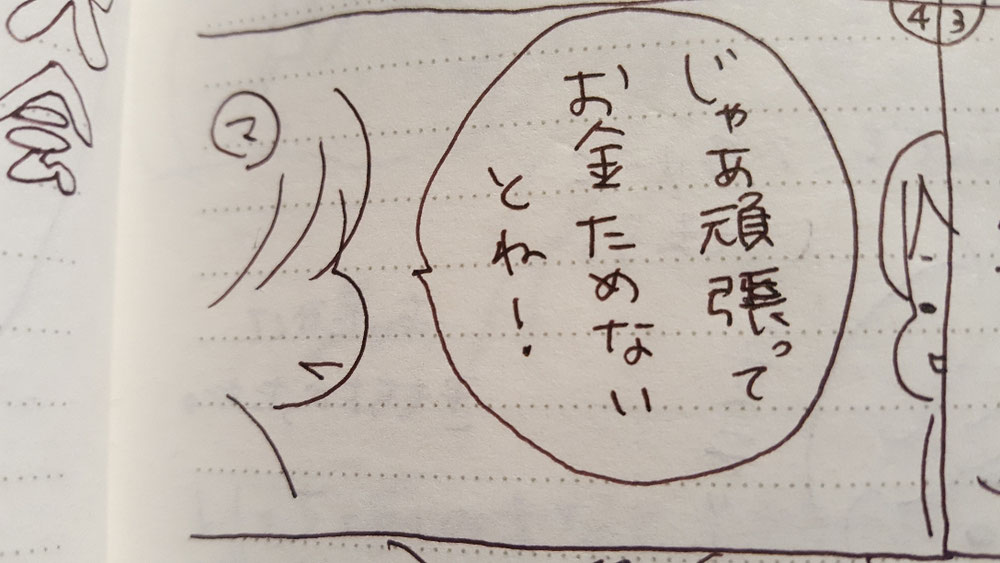 3
4
じゃあ頑張って
お金ためない
とね!
マ
会